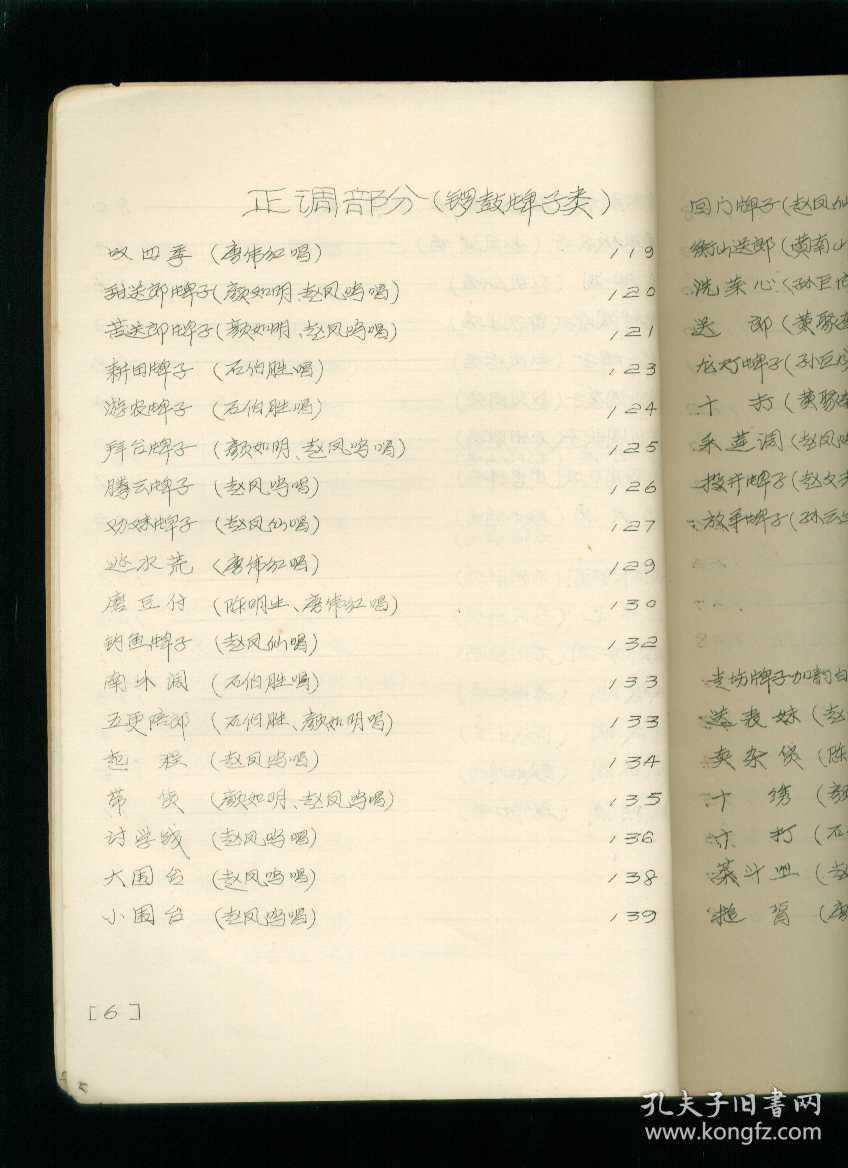 正调部分(锣鼓牌子类)
叹四季 (唐伟红唱) 119
甜送郎牌子(颜如明、赵凤鸣唱) 120
苦送郎牌子(颜如明、赵凤鸣唱) 121
耕田牌子 (石伯胜唱) 123
游农牌子 (石伯胜唱) 124
拜台牌子 (颜如明、赵凤鸣唱) 125
腾云牌子 (赵凤鸣唱) 126
劝妹牌子 (赵凤仙唱) 127
逃水荒 (唐伟红唱) 129
磨豆付 (陈明生、唐伟红唱) 130
钓鱼牌子 (赵凤仙唱) 132
南林调 (石伯胜唱) 133
五更陪郎 (石伯胜、颜如明唱) 133
起 程 (赵凤鸣唱) 134
带 货 (颜如明、赵凤鸣唱) 135
讨学钱 (赵凤鸣唱) 136
大围台 (赵凤鸣唱) 138
小围台 (赵凤鸣唱) 139
[6]
回门牌子(赵凤仙
送郎(黄南山
洗菜心(孙巨
送 郎 (黄
龙灯牌子(孙
十 打 (黄
采莲调(赵凤
投井牌子(赵
放牌子(孙
走场牌子加韵白
送表妹(赵
卖杂货(陈
十 绣 (颜
十 打 (石
孔夫子旧书网
www.kongfz.com